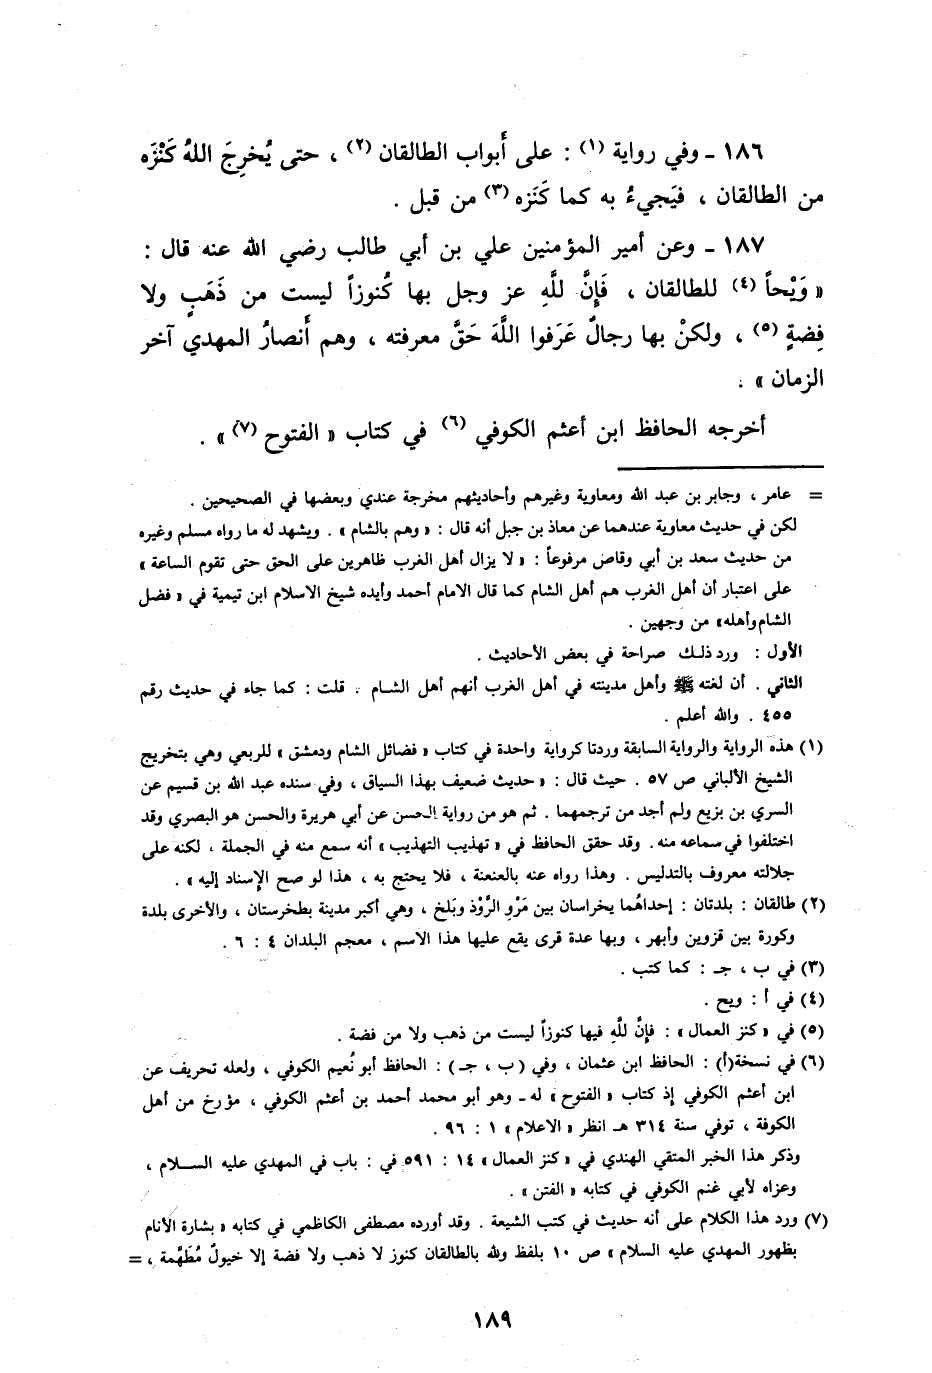 ١٨٦ ـ وفي رواية (١) : على أبواب الطالقان (٢) ، حتى يُخرِجَ اللهُ كَنْزَه
من الطالقان ، فيَجيءُ به كما كَنَزه (٣) من قبل .
١٨٧ ـ وعن أمير المؤمنين علي بن أبي طالب رضي الله عنه قال :
« وَيْحاً (٤) للطالقان ، فَإِنَّ للَّهِ عز وجل بها كُنوزاً ليست من ذَهَبٍ ولا
فِضةٍ (٥) ، ولكنْ بها رجالٌ عَرَفوا اللَّهَ حَقَّ معرفته ، وهم أَنصارُ المهدي آخر
الزمان » .
أخرجه الحافظ ابن أعثم الكوفي (٦) في كتاب « الفتوح (٧) » .
= عامر ، وجابر بن عبد الله ومعاوية وغيرهم وأحاديثهم مخرجة عندي وبعضها في الصحيحين .
لكن في حديث معاوية عندهما عن معاذ بن جبل أنه قال : « وهم بالشام » . ويشهد له ما رواه مسلم وغيره
من حديث سعد بن أبي وقاص مرفوعاً : « لا يزال أهل الغرب ظاهرين على الحق حتى تقوم الساعة »
على اعتبار أن أهل الغرب هم أهل الشام كما قال الامام أحمد وأيده شيخ الاسلام ابن تيمية في « فضل
الشام وأهله» من وجهين .
الأول : ورد ذلك صراحة في بعض الأحاديث .
الثاني . أن لغته ﷺ وأهل مدينته في أهل الغرب أنهم أهل الشام . قلت : كما جاء في حديث رقم
٤٥٥ . والله أعلم .
(١) هذه الرواية والرواية السابقة وردتا كرواية واحدة في كتاب « فضائل الشام ودمشق » للربعي وهي بتخريج
الشيخ الألباني ص ٥٧ . حيث قال : « حديث ضعيف بهذا السياق ، وفي سنده عبد الله بن قسيم عن
السري بن بزيع ولم أجد من ترجمهما . ثم هو من رواية الحسن عن أبي هريرة والحسن هو البصري وقد
اختلفوا في سماعه منه. وقد حقق الحافظ في « تهذيب التهذيب » أنه سمع منه في الجملة ، لكنه على
جلالته معروف بالتدليس . وهذا رواه عنه بالعنعنة ، فلا يحتج به ، هذا لو صح الإسناد إليه » .
(٢) طالقان : بلدتان : إحداهُما بخراسان بين مَرْوِ الرُّوْذ وبَلخ ، وهي أكبر مدينة بطخرستان ، والأخرى بلدة
وكورة بين قزوين وأبهر ، وبها عدة قرى يقع عليها هذا الاسم ، معجم البلدان ٤ : ٦ .
(٣) في ب ، جـ : كما كتب .
(٤) في أ : ويح .
(٥) في « كنز العمال » : فإنَّ للَّهِ فيها كنوزاً ليست من ذهب ولا من فضة .
(٦) في نسخة(أ) : الحافظ ابن عثمان ، وفي ( ب ، جـ ) : الحافظ أبو نُعيم الكوفي ، ولعله تحريف عن
ابن أعثم الكوفي إذ كتاب « الفتوح » له ـ وهو أبو محمد أحمد بن أعثم الكوفي ، مؤرخ من أهل
الكوفة ، توفي سنة ٣١٤ هـ انظر « الاعلام » ١ : ٩٦ .
وذكر هذا الخبر المتقي الهندي في « كنز العمال » ١٤ : ٥٩١ في : باب في المهدي عليه السلام ،
وعزاه لأبي غنم الكوفي في كتابه « الفتن » .
(٧) ورد هذا الكلام على أنه حديث في كتب الشيعة . وقد أورده مصطفى الكاظمي في كتابه « بشارة الأنام
بظهور المهدي عليه السلام » ص ١٠ بلفظ ولله بالطالقان كنوز لا ذهب ولا فضة إلا خيولٌ مُطَهَّمة ، =
١٨٩